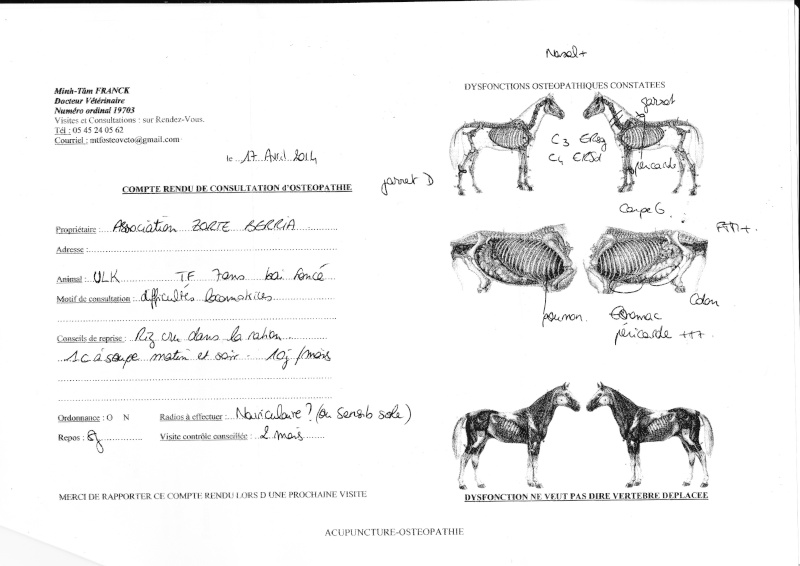 Minh-Tâm FRANCK
Docteur Vétérinaire
Numéro ordinal 19703
Visites et Consultations : sur Rendez-Vous.
Tél : 05 45 24 05 62
Courriel : mtfosteoveto@gmail.com
le 17 Avril 2014
COMPTE RENDU DE CONSULTATION d'OSTEOPATHIE
Propriétaire : Association ZORTE BERRIA
Adresse :
Animal : ULK T.F 7ans bai foncé
Motif de consultation : difficultés locomotrices
Conseils de reprise : Riz cru dans la ration
1 c à soupe matin et soir. 10j/mois
Ordonnance : O N Radios à effectuer : Naviculaire ? (ou Sensib sole)
Repos : 8j Visite contrôle conseillée : 2 mois
MERCI DE RAPPORTER CE COMPTE RENDU LORS D UNE PROCHAINE VISITE
Nasal+
DYSFONCTIONS OSTEOPATHIQUES CONSTATEES
garrot
C3
C4
péricarde
jarret D
G
poumon
Estomac
Colon
péricarde +++
DYSFONCTION NE VEUT PAS DIRE VERTEBRE DEPLACEE
ACUPUNCTURE-OSTEOPATHIE